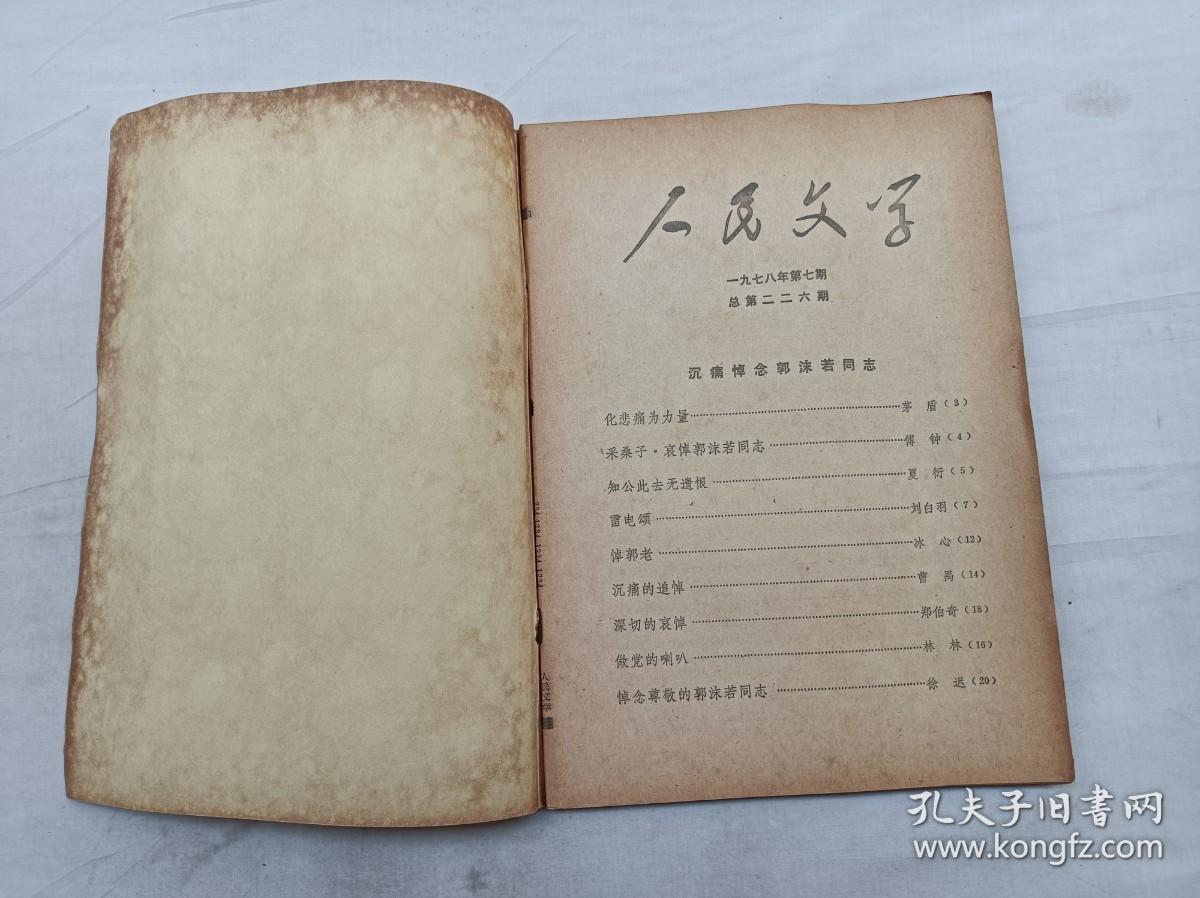 人民文学
一九七八年第七期
总第二二六期
沉痛悼念郭沫若同志
化悲痛为力量……茅 盾(3)
采桑子·哀悼郭沫若同志……傅 钟(4)
知公此去无遗恨……夏 衍(5)
雷电颂……刘白羽(7)
悼郭老……冰 心(12)
沉痛的追悼……曹 禺(14)
深切的哀悼……郑伯奇(18)
做党的喇叭……林 林(16)
悼念尊敬的郭沫若同志……徐 迟(20)
人民文学
孔夫子旧书网
www.kongfz.com